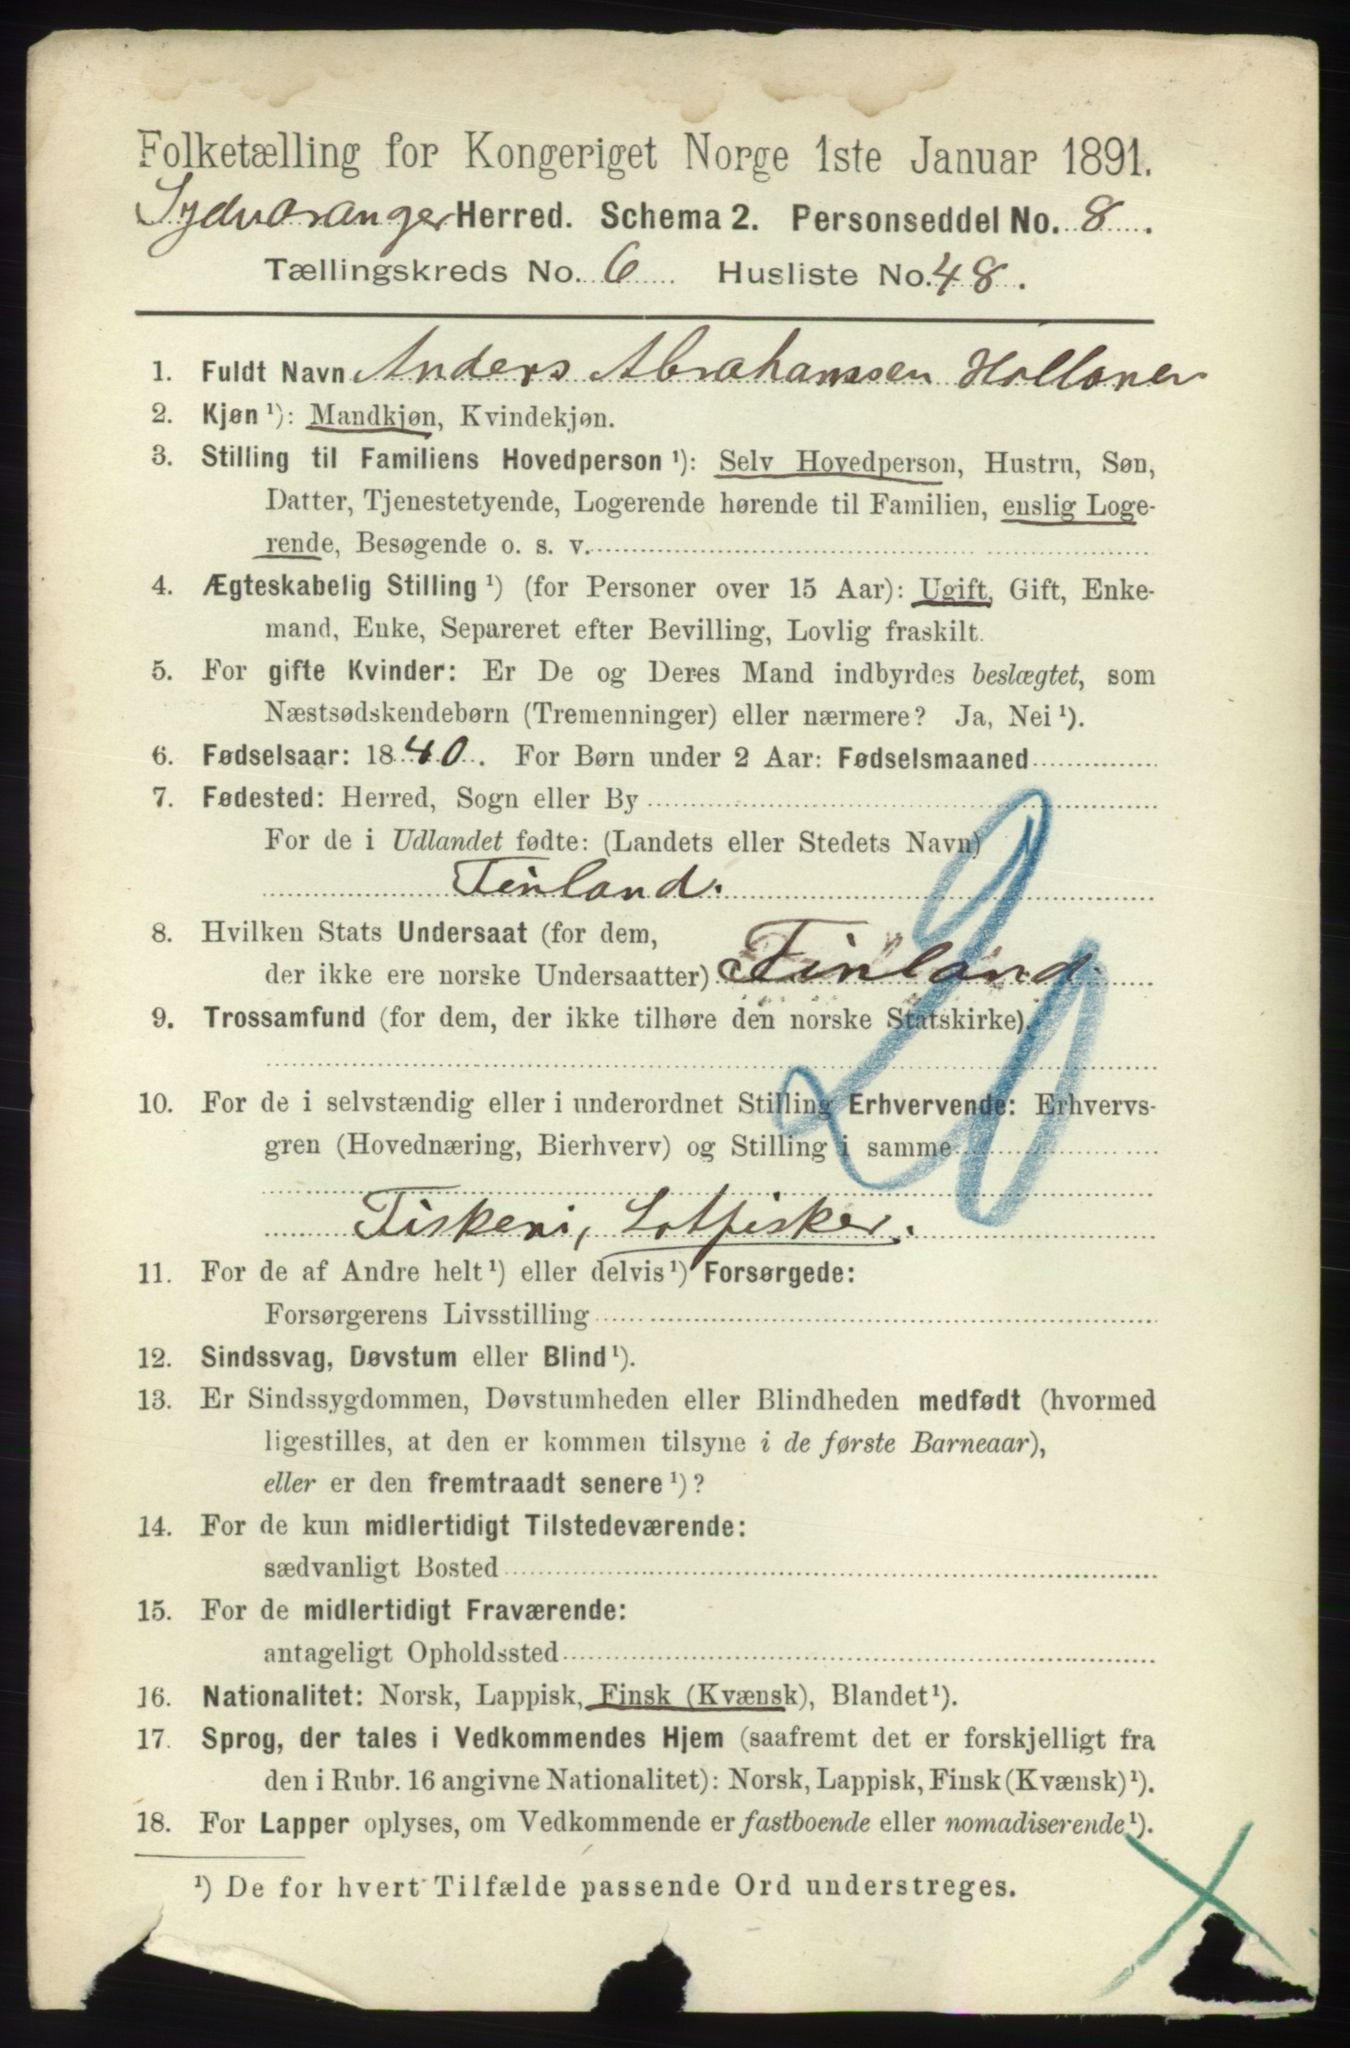 Folketælling for Kongeriget Norge 1ste Januar 1891.
Sydvaranger Herred. Schema 2. Personseddel No. 8.
Tællingskreds No. 6 Husliste No. 48.
1. Fuldt Navn Anders Abrahamsen Hollaner
2. Kjøn ¹): Mandkjøn, Kvindekjøn.
3. Stilling til Familiens Hovedperson ¹): Selv Hovedperson, Hustru, Søn,
Datter, Tjenestetyende, Logerende hørende til Familien, enslig Loge-
rende, Besøgende o. s. v.
4. Ægteskabelig Stilling ¹) (for Personer over 15 Aar): Ugift, Gift, Enke-
mand, Enke, Separeret efter Bevilling, Lovlig fraskilt.
5. For gifte Kvinder: Er De og Deres Mand indbyrdes beslægtet, som
Næstsødskendebørn (Tremenninger) eller nærmere? Ja, Nei ¹).
6. Fødselsaar: 1840. For Børn under 2 Aar: Fødselsmaaned
7. Fødested: Herred, Sogn eller By
For de i Udlandet fødte: (Landets eller Stedets Navn)
Finland.
8. Hvilken Stats Undersaat (for dem,
der ikke ere norske Undersaatter) Finland.
9. Trossamfund (for dem, der ikke tilhøre den norske Statskirke).
10. For de i selvstændig eller i underordnet Stilling Erhvervende: Erhvervs-
gren (Hovednæring, Bierhverv) og Stilling i samme
Fiskeri, Lotfisker.
11. For de af Andre helt ¹) eller delvis ¹) Forsørgede:
Forsørgerens Livsstilling
12. Sindssvag, Døvstum eller Blind ¹).
13. Er Sindssygdommen, Døvstumheden eller Blindheden medfødt (hvormed
ligestilles, at den er kommen tilsyne i de første Barneaar),
eller er den fremtraadt senere ¹)?
14. For de kun midlertidigt Tilstedeværende:
sædvanligt Bosted
15. For de midlertidigt Fraværende:
antageligt Opholdssted
16. Nationalitet: Norsk, Lappisk, Finsk (Kvænsk), Blandet ¹).
17. Sprog, der tales i Vedkommendes Hjem (saafremt det er forskjelligt fra
den i Rubr. 16 angivne Nationalitet): Norsk, Lappisk, Finsk (Kvænsk) ¹).
18. For Lapper oplyses, om Vedkommende er fastboende eller nomadiserende ¹).
¹) De for hvert Tilfælde passende Ord understreges.